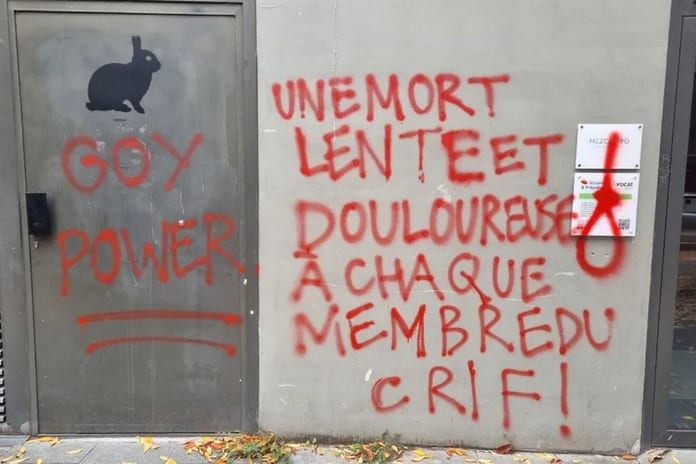 GOY
POWER.
UNE MORT
LENTE ET
DOULOUREUSE
À CHAQUE
MEMBRE DU
CRIF!
vocat